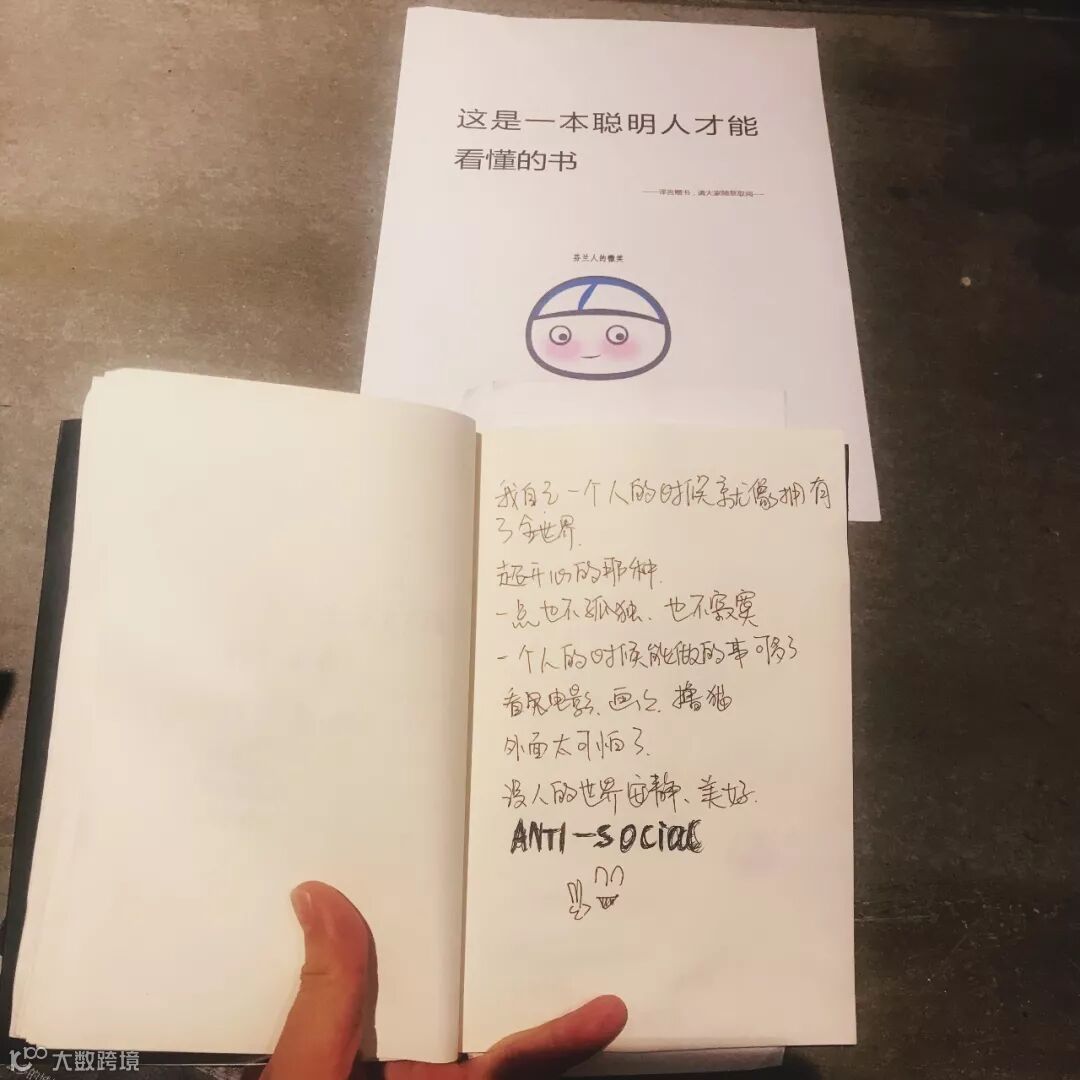 这是一本聪明人才能
看懂的书
芬兰人的微笑
我自己一个人的时候就像拥有
了全世界.
超开心的那种.
一点也不孤独、也不寂寞
一个人的时候能做的事可多了
看鬼电影、画画、撸猫
外面太可怕了.
没人的世界安静、美好.
ANTI-SOCIAL
大数跨境